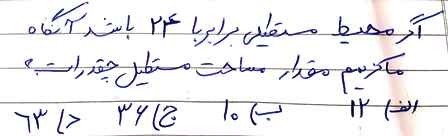 اگر محیط مستطیلی برابر با ۲۴ باشد آنگاه
ماکزیمم مقدار مساحت مستطیل چقدر است؟
الف) ۱۲ ب) ۱۰ ج) ۳۶ د) ۶۳